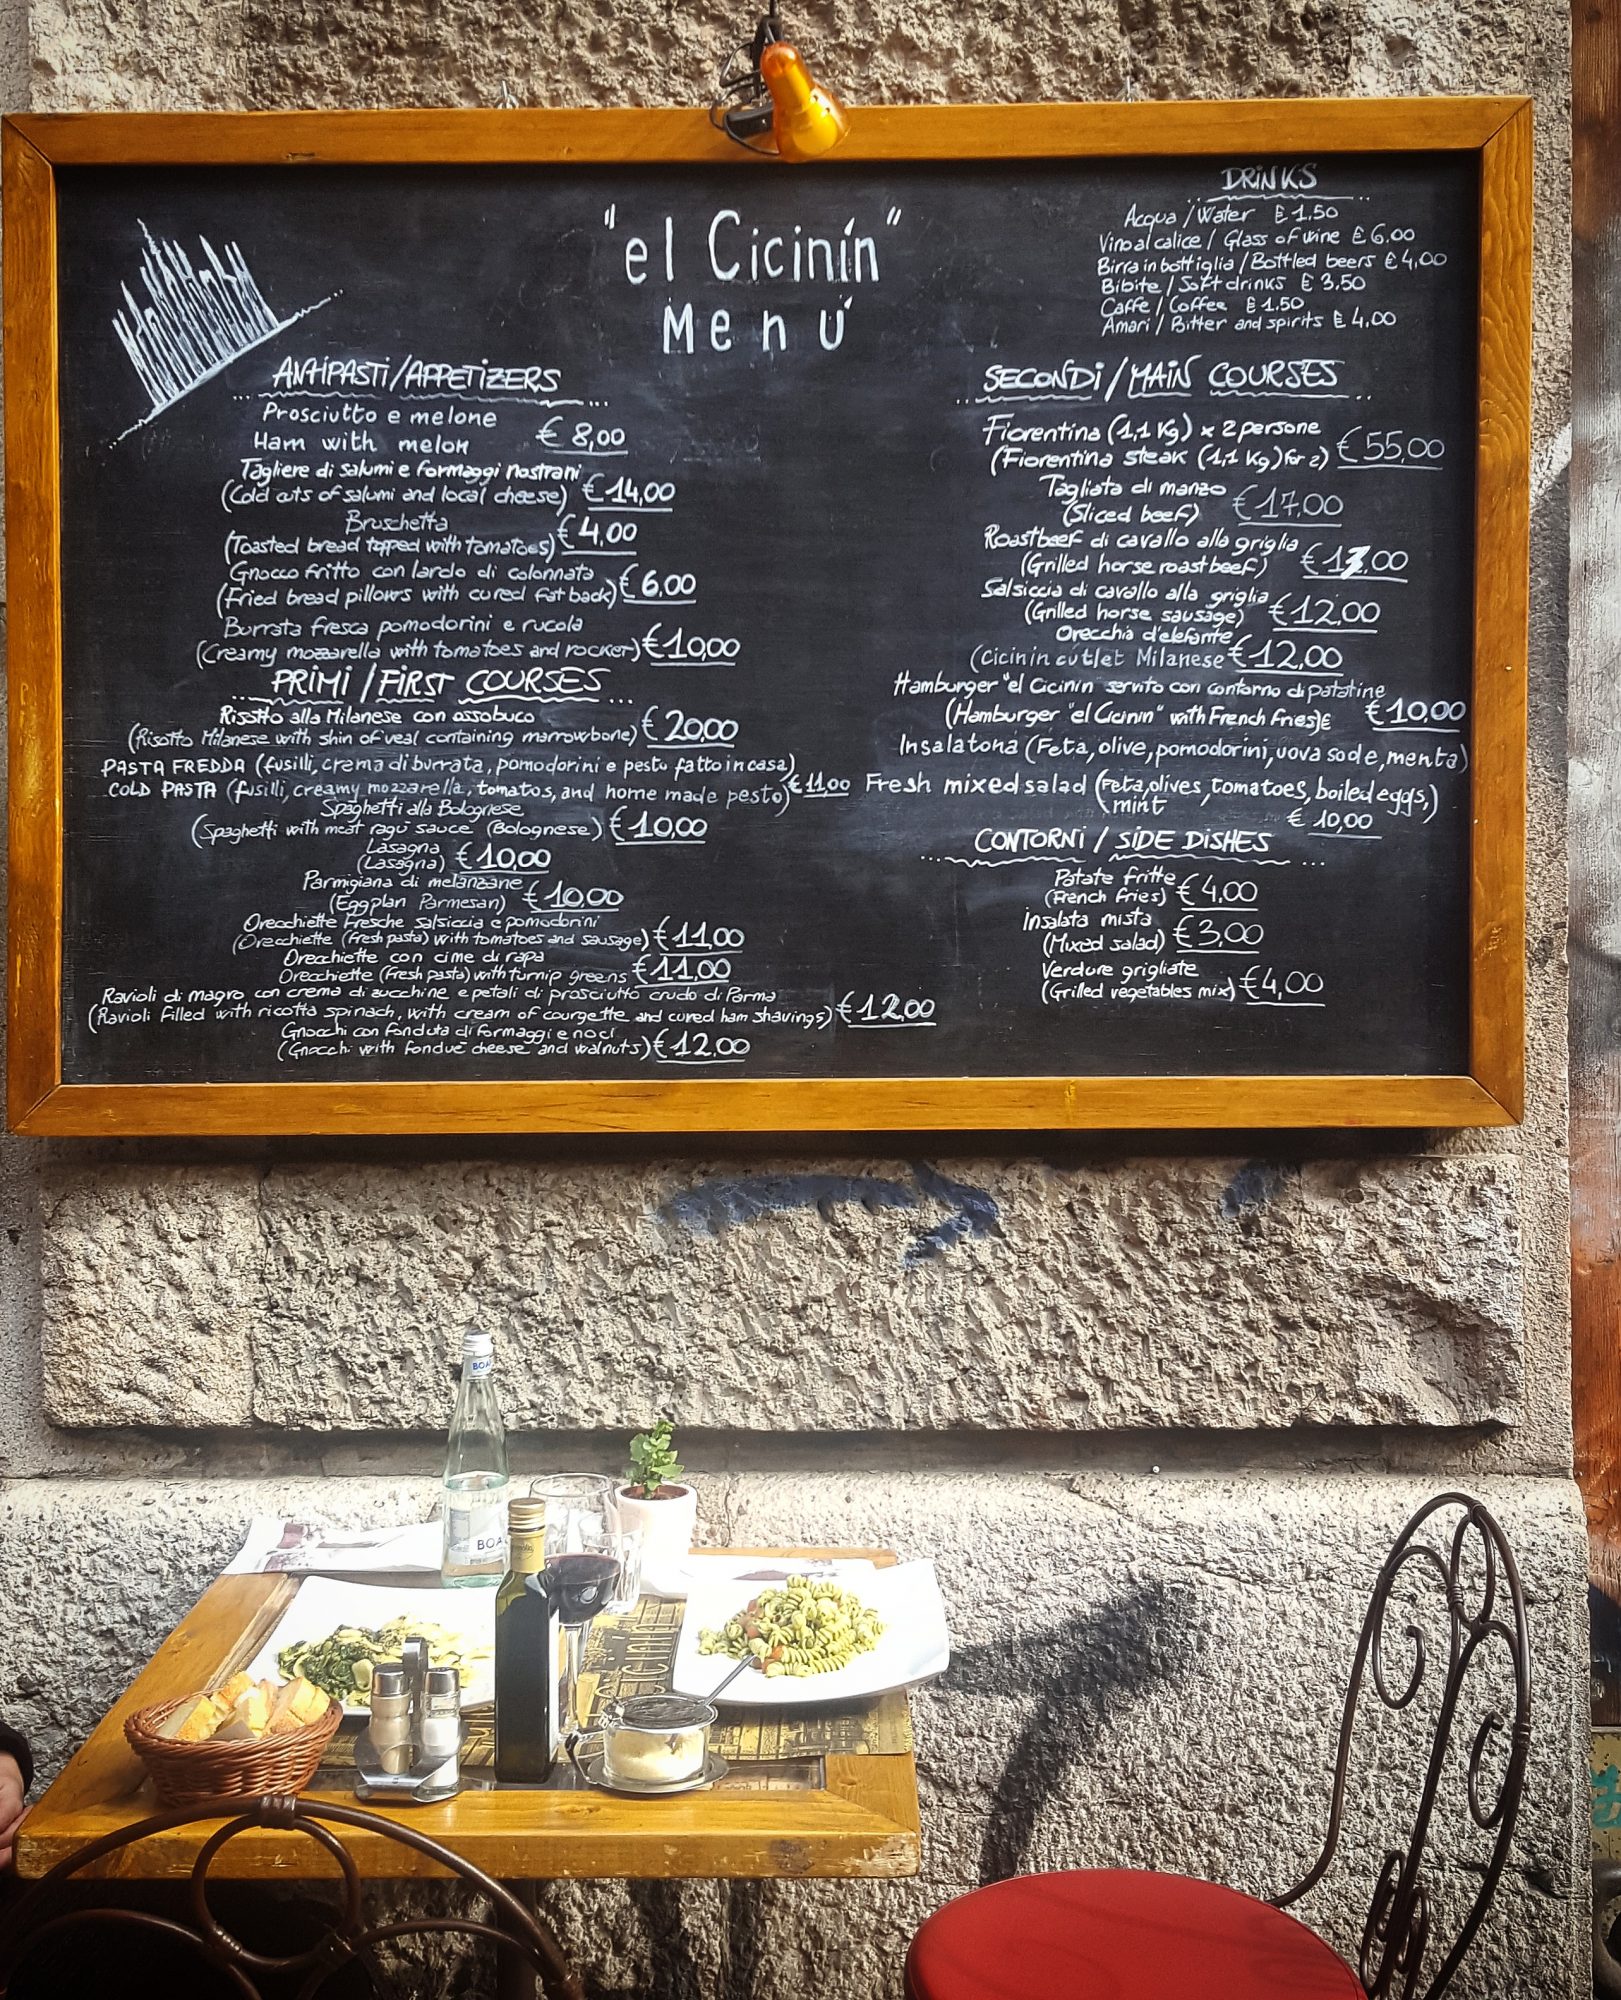 "el Cicinín"
Menú
DRINKS
Acqua / Water € 1,50
Vino al calice / Glass of wine € 6,00
Birra in bottiglia / Bottled beers € 4,00
Bibite / Soft drinks € 3,50
Caffe / Coffee € 1,50
Amari / Bitter and spirits € 4,00
ANTIPASTI/APPETIZERS
Prosciutto e melone
Ham with melon € 8,00
Tagliere di salumi e formaggi nostrani
(Cold cuts of salumi and local cheese) € 14,00
Bruschetta € 4,00
(Toasted bread topped with tomatoes)
Gnocco fritto con lardo di colonnata € 6,00
(Fried bread pillows with cured fat back)
Burrata fresca pomodorini e rucola
(Creamy mozzarella with tomatoes and rocket) € 10,00
PRIMI / FIRST COURSES
Risotto alla Milanese con ossobuco € 20,00
(Risotto Milanese with shin of veal containing marrowbone)
PASTA FREDDA (fusilli, crema di burrata, pomodorini e pesto fatto in casa)
COLD PASTA (fusilli, creamy mozzarella, tomatos, and home made pesto) € 11,00
Spaghetti alla Bolognese
(Spaghetti with meat ragù sauce (Bolognese) € 10,00
Lasagna
(Lasagna) € 10,00
Parmigiana di melanzane
(Eggplan Parmesan) € 10,00
Orecchiette fresche salsiccia e pomodorini
(Orecchiette (fresh pasta) with tomatoes and sausage) € 11,00
Orecchiette con cime di rapa
Orecchiette (fresh pasta) with turnip greens € 11,00
Ravioli di magro con crema di zucchine e petali di prosciutto crudo di Parma
(Ravioli filled with ricotta spinach, with cream of courgette and cured ham shavings) € 12,00
Gnocchi con fonduta di formaggi e noci
(Gnocchi with fondue cheese and walnuts) € 12,00
SECONDI / MAIN COURSES
Fiorentina (1,1 Kg) x 2 persone
(Fiorentina steak (1,1 Kg) for 2) € 55,00
Tagliata di manzo
(Sliced beef) € 17,00
Roastbeef di cavallo alla griglia
(Grilled horse roast beef) € 13,00
Salsiccia di cavallo alla griglia
(Grilled horse sausage) € 12,00
Orecchia d'elefante
(Cicinin cutlet Milanese € 12,00
Hamburger "el Cicinin servito con contorno di patatine
(Hamburger "el Cicinin" with French Fries)€ € 10,00
Insalatona (Feta, olive, pomodorini, uova sode, menta)
Fresh mixed salad (Feta, olives, tomatoes, boiled eggs,)
mint € 10,00
CONTORNI / SIDE DISHES
Patate fritte
(French fries) € 4,00
Insalata mista
(Mixed salad) € 3,00
Verdure grigliate
(Grilled vegetables mix) € 4,00